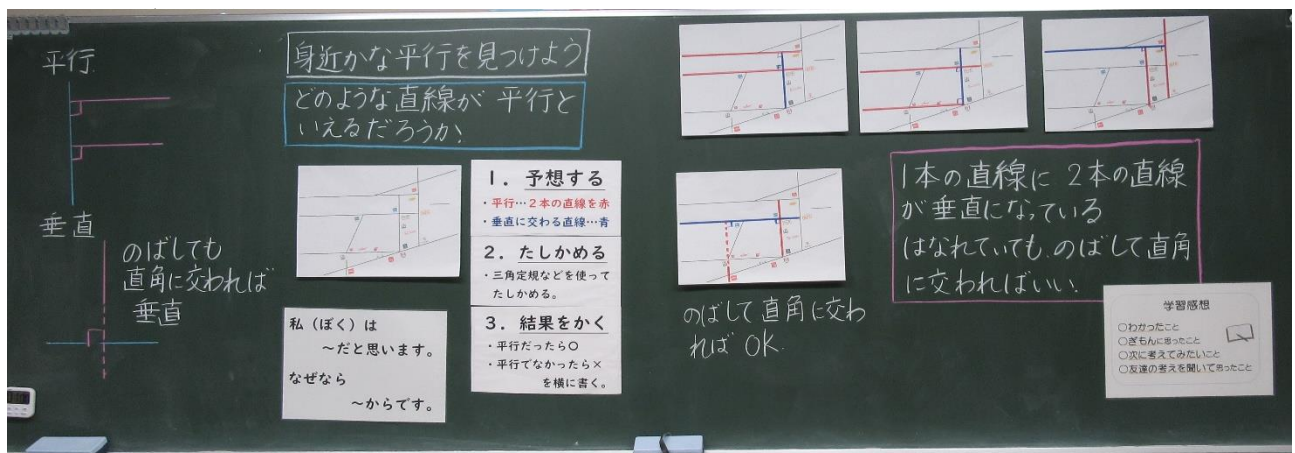 平行
垂直
のばしても
直角に交われば
垂直
身近かな平行を見つけよう
どのような直線が 平行と
いえるだろうか。
私（ぼく）は
～だと思います。
なぜなら
～からです。
1. 予想する
・平行…2本の直線を赤
・垂直に交わる直線…青
2. たしかめる
・三角定規などを使って
たしかめる。
3. 結果をかく
・平行だったら○
・平行でなかったら×
を横に書く。
のばして直角に交わ
れば OK.
1本の直線に 2本の直線
が垂直になっている
はなれていても、のばして直角
に交わればいい.
学習感想
○わかったこと
○ぎもんに思ったこと
○次に考えてみたいこと
○友達の考えを聞いて思ったこと